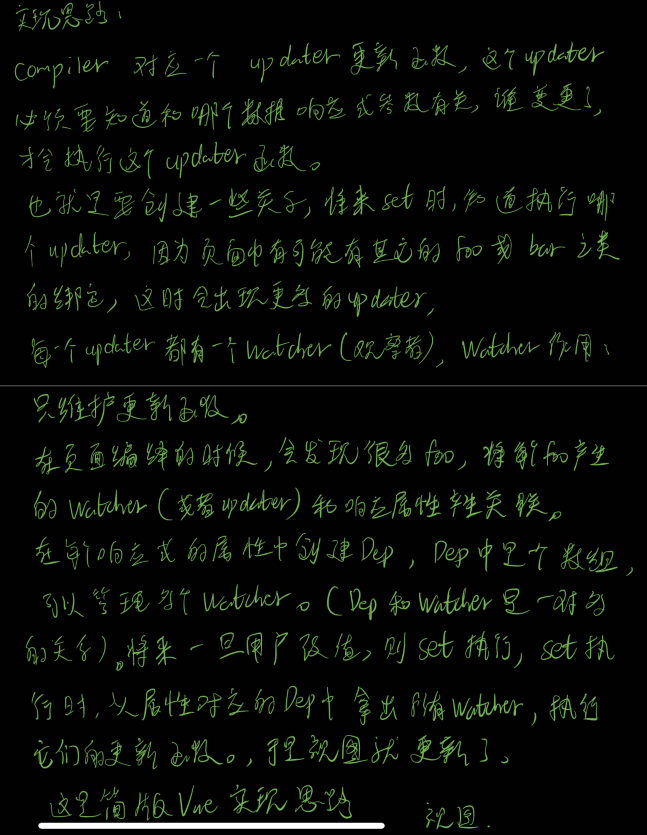 实现思路：
compiler 对应一个 updater 更新函数，这个updater
必须要知道和哪个数据响应式参数有关，谁变更了，
才会执行这个 updater 函数。
也就是要创建一些关系，将来 set 时，知道执行哪
个 updater，因为页面中有可能有其它的 foo 或 bar 之类
的绑定，这时会出现更多的updater，
每一个 updater 都有一个 Watcher（观察者），Watcher 作用：
只维护更新函数。
在页面编译的时候，会发现很多 foo，将每个foo产生
的 Watcher（或者updater）和响应属性产生关联。
在每个响应式的属性中创建Dep，Dep中是个数组，
可以管理多个 Watcher。（Dep 和 Watcher 是一对多
的关系）。将来一旦用户改值，则 set 执行，set 执
行时，从属性对应的Dep中 拿出所有Watcher，执行
它们的更新函数。，于是视图就更新了。
这是简版 Vue 实现思路
视图.